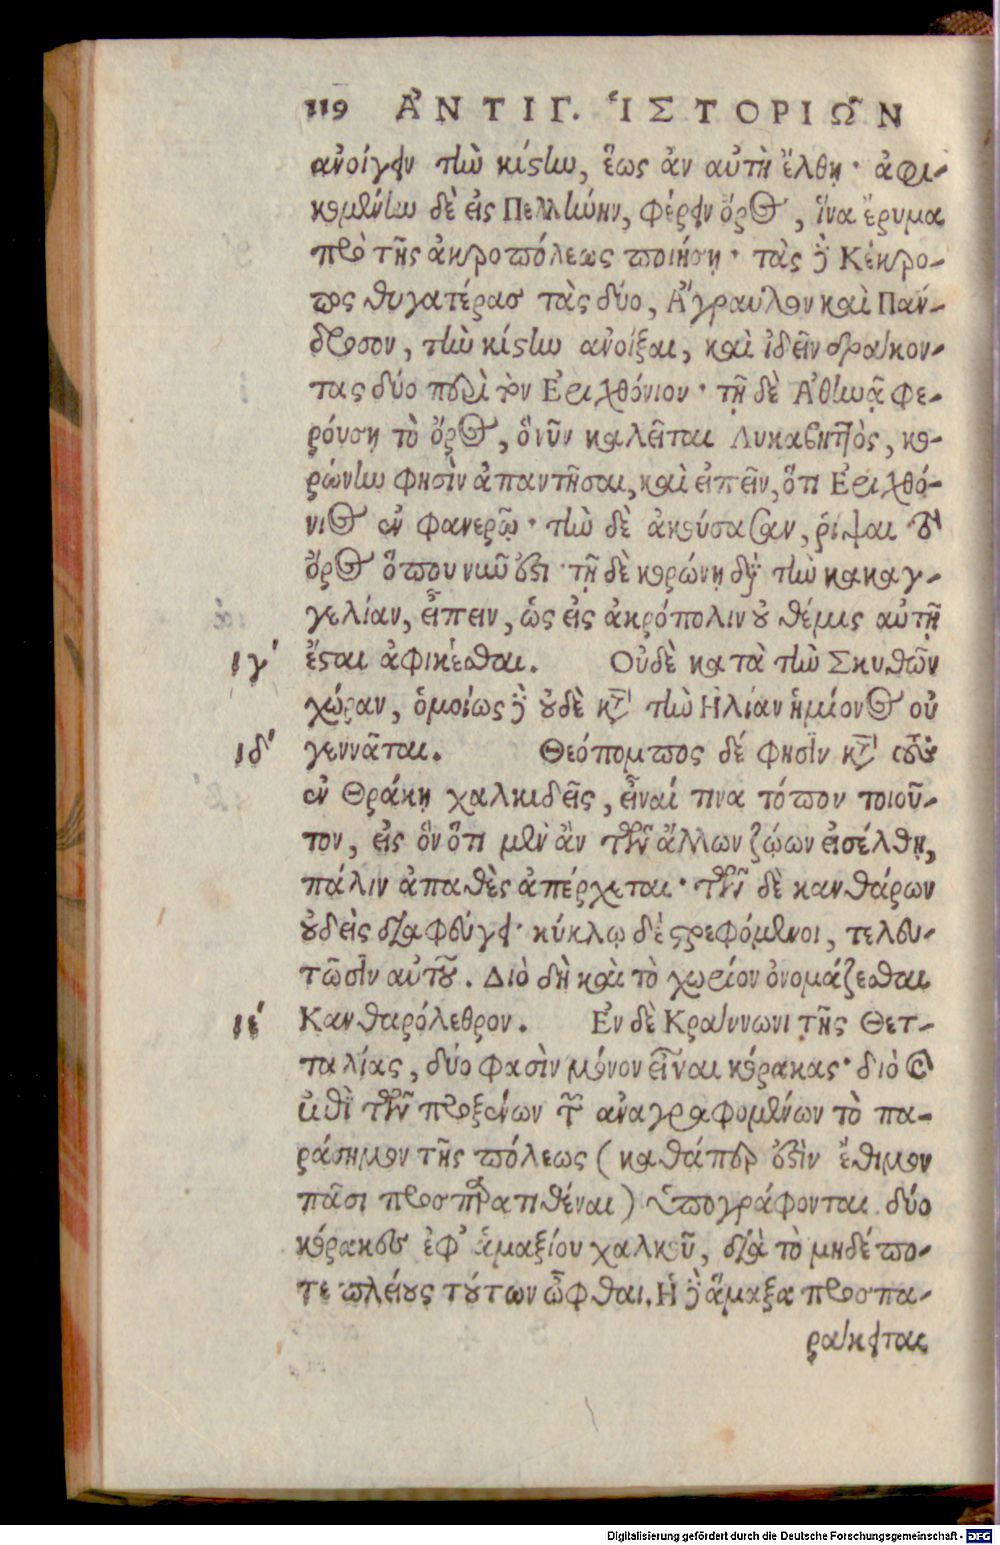 119 ἈΝΤΙΓ. ἹΣΤΟΡΙΩ͂Ν
ανοίγειν τὴν κίστην, ἕως ἀν αὐτὴ ἔλθῃ· ἀφι-
κομένην δὲ εἰς Πελλήνην, φέρειν ὄρος, ἵνα ἔρυμα
πρὸ τῆς ἀκροπόλεως ποιήσῃ· τὰς δὲ Κέκρο-
πος θυγατέρας τὰς δύο, Ἄγραυλον καὶ Πάν-
δροσον, τὴν κίστην ανοίξαι, καὶ ἰδεῖν δράκον-
τας δύο περὶ τὸν Ἐριχθόνιον· τῇ δὲ Ἀθηνᾷ φε-
ρούσῃ τὸ ὄρος, ὃ νῦν καλεῖται Λυκαβηττὸς, κο-
ρώνην φησὶν ἀπαντῆσαι, καὶ εἰπεῖν, ὅτι Ἐριχθό-
νιος ἐν φανερῷ· τὴν δὲ ἀκούσασαν, ῥίψαι τὸ
ὄρος ὅπου νῦν ἐστι· τῇ δὲ κορώνῃ διὰ τὴν κακαγ-
γελίαν, εἶπειν, ὡς εἰς ἀκρόπολιν οὐ θέμις αὐτῇ
ιγ΄ ἔσται ἀφικέσθαι. Οὐδὲ κατὰ τὴν Σκυθῶν
χώραν, ὁμοίως δὲ οὐδὲ κατὰ τὴν Ηλίαν ἡμίονος οὐ
ιδ΄ γεννᾶται. Θεόπομπος δέ φησὶν κατὰ τοὺς
ἐν Θράκῃ χαλκιδεῖς, εἶναί τινα τόπον τοιοῦ-
τον, εἰς ὃν ὅτι μὲν ἂν τῶν ἄλλων ζῴων εἰσέλθῃ,
πάλιν ἀπαθὲς ἀπέρχεται· τῶν δὲ κανθάρων
οὐδεὶς διαφεύγει· κύκλῳ δὲ στρεφόμενοι, τελευ-
τῶσιν αὐτοῦ. Διὸ δὴ καὶ τὸ χωρίον ὀνομάζεσθαι
ιέ Κανθαρόλεθρον. Ἐν δὲ Κράννωνι τῆς Θετ-
ταλίας, δύο φασὶν μόνον εἶναι κόρακας· διὸ καὶ
ἐπὶ τῶν προξένων τῶν αναγραφομένων τὸ πα-
ράσημον τῆς πόλεως (καθάπερ ἐστὶν ἔθιμον
πᾶσι προσπαρατιθέναι) ὑπογράφονται δύο
κόρακες ἐφ' ἁμαξίου χαλκοῦ, διὰ τὸ μηδέπο-
τε πλείους τούτων ὦφθαι. Ἡ δὲ ἅμαξα προσπα-
ράκειται

Digitalisierung gefördert durch die Deutsche Forschungsgemeinschaft - DFG